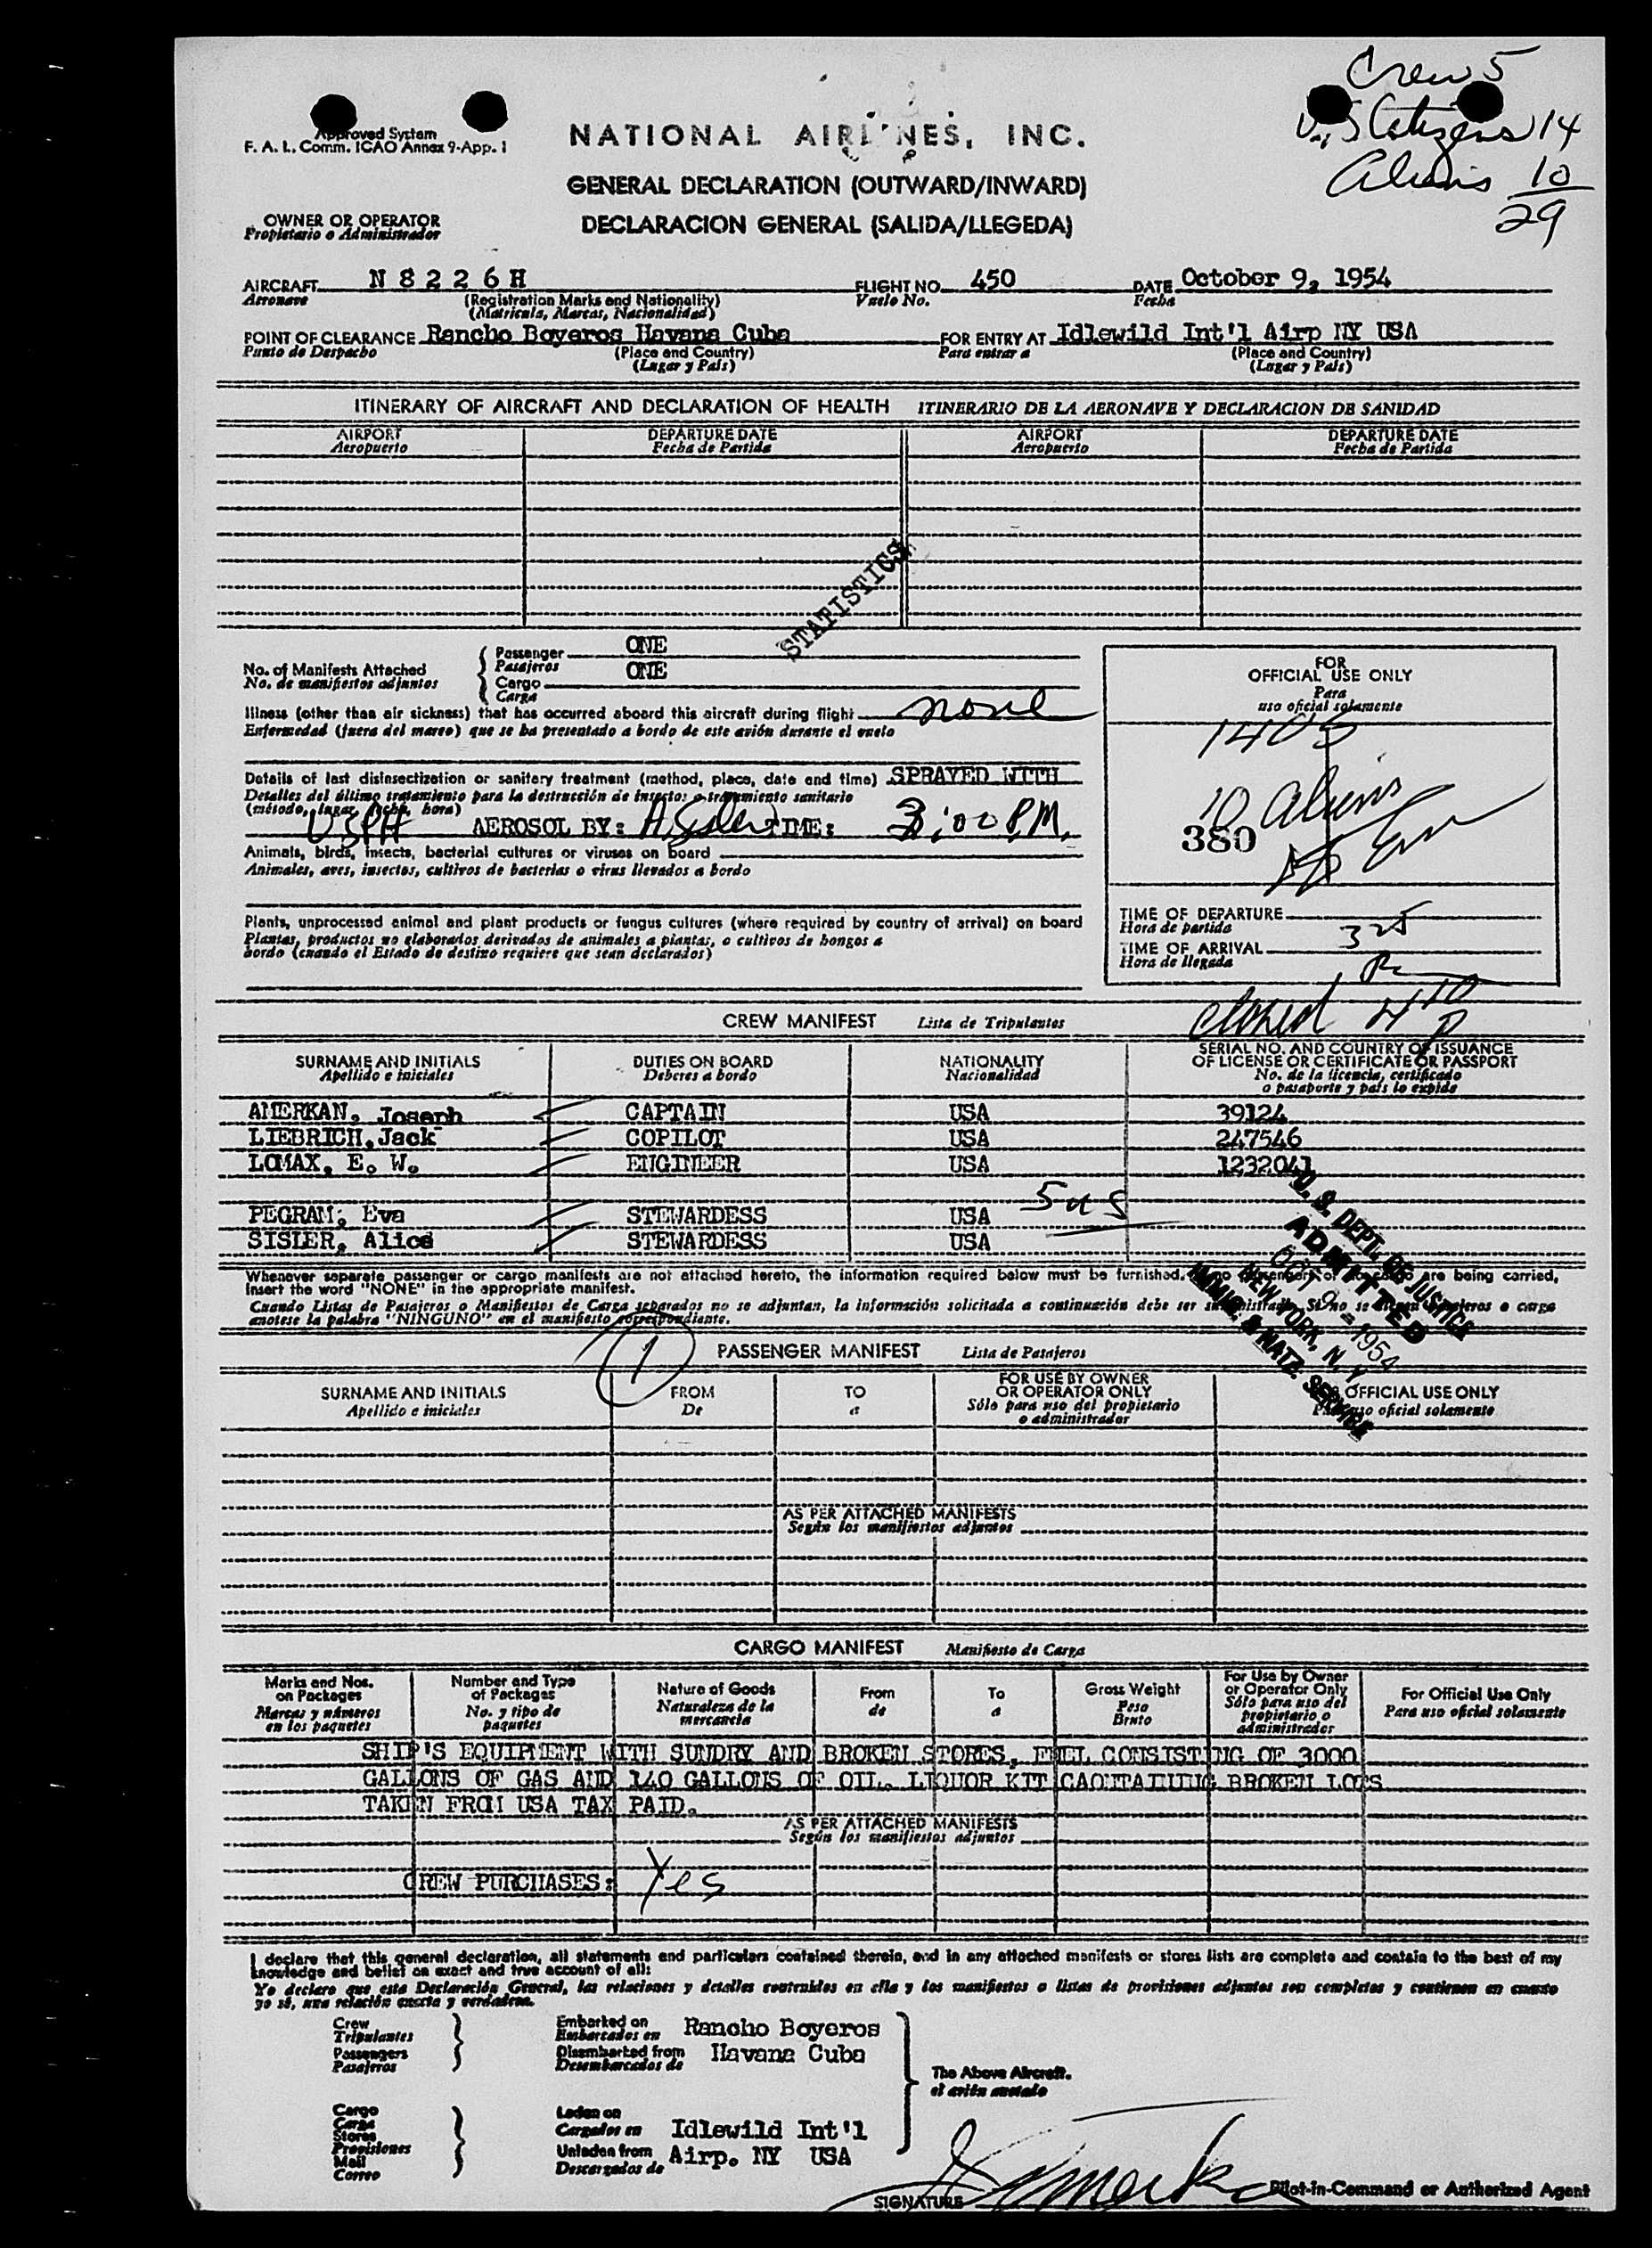 Crew 5
U.S. Citizens 14
Aliens 10
29
Approved System
F. A. L. Comm. ICAO Annex 9-App. 1
NATIONAL AIRLINES, INC.
GENERAL DECLARATION (OUTWARD/INWARD)
DECLARACION GENERAL (SALIDA/LLEGEDA)
OWNER OR OPERATOR
Propietario o Administrador
AIRCRAFT N 8 2 2 6 H FLIGHT NO. 450 DATE October 9, 1954
Aeronave (Registration Marks and Nationality) Vuelo No. Fecha
(Matricula, Marcas, Nacionalidad)
POINT OF CLEARANCE Rancho Boyeros Havana Cuba FOR ENTRY AT Idlewild Int'l Airp NY USA
Punto de Despacho (Place and Country) Para entrar a (Place and Country)
(Lugar y País) (Lugar y País)
ITINERARY OF AIRCRAFT AND DECLARATION OF HEALTH ITINERARIO DE LA AERONAVE Y DECLARACION DE SANIDAD
AIRPORT DEPARTURE DATE AIRPORT DEPARTURE DATE
Aeropuerto Fecha de Partida Aeropuerto Fecha de Partida
STATISTICS
No. of Manifests Attached
No. de manifiestos adjuntos
Passenger ONE
Pasajeros
Cargo ONE
Carga
Illness (other than air sickness) that has occurred aboard this aircraft during flight none
Enfermedad (fuera del mareo) que se ha presentado a bordo de este avión durante el vuelo
Details of last disinsectization or sanitary treatment (method, place, date and time) SPRAYED WITH
Detalles del último tratamiento para la destrucción de insectos o tratamiento sanitario
(método, lugar, fecha, hora)
USPH AEROSOL BY: TIME: 3:00 P.M.
Animals, birds, insects, bacterial cultures or viruses on board
Animales, aves, insectos, cultivos de bacterias o virus llevados a bordo
Plants, unprocessed animal and plant products or fungus cultures (where required by country of arrival) on board
Plantas, productos no elaborados derivados de animales a plantas, o cultivos de hongos a
bordo (cuando el Estado de destino requiere que sean declarados)
FOR
OFFICIAL USE ONLY
Para
uso oficial solamente
10 aliens
380
TIME OF DEPARTURE
Hora de partida
325
TIME OF ARRIVAL
Hora de llegada
closed 4 10 P
CREW MANIFEST Lista de Tripulantes
SURNAME AND INITIALS DUTIES ON BOARD NATIONALITY SERIAL NO. AND COUNTRY OF ISSUANCE
Apellido e iniciales Deberes a bordo Nacionalidad OF LICENSE OR CERTIFICATE OR PASSPORT
No. de la licencia, certificado
o pasaporte y país lo expide
AMERKAN, Joseph CAPTAIN USA 39124
LIEBRICH, Jack COPILOT USA 247546
LOMAX, E. W. ENGINEER USA 1232041
5 US
PEGRAM, Eva STEWARDESS USA
SISLER, Alice STEWARDESS USA
U. S. DEPT. OF JUSTICE
ADMITTED
OCT 9 - 1954
NEW YORK, N. Y.
IMMIG. & NATZ. SERVICE
Whenever separate passenger or cargo manifests are not attached hereto, the information required below must be furnished. If no passengers or no cargo are being carried,
insert the word "NONE" in the appropriate manifest.
Cuando Listas de Pasajeros o Manifiestos de Carga separados no se adjuntan, la información solicitada a continuación debe ser suministrada. Si no se llevan pasajeros o carga
anotese la palabra "NINGUNO" en el manifiesto correspondiente.
1
PASSENGER MANIFEST Lista de Pasajeros
SURNAME AND INITIALS FROM TO FOR USE BY OWNER OFFICIAL USE ONLY
Apellido e iniciales De a OR OPERATOR ONLY Para uso oficial solamente
Sólo para uso del propietario
o administrador
AS PER ATTACHED MANIFESTS
Según los manifiestos adjuntos
CARGO MANIFEST Manifiesto de Carga
Marks and Nos. on Packages Number and Type of Packages Nature of Goods From To Gross Weight For Use by Owner or Operator Only For Official Use Only
Marcas y números en los paquetes No. y tipo de paquetes Naturaleza de la mercancía de a Peso Bruto Sólo para uso del propietario o administrador Para uso oficial solamente
SHIP'S EQUIPMENT WITH SUNDRY AND BROKEN STORES, FUEL CONSISTING OF 3000
GALLONS OF GAS AND 140 GALLONS OF OIL. LIQUOR KIT CAONTAINING BROKEN LOTS
TAKEN FROM USA TAX PAID.
AS PER ATTACHED MANIFESTS
Según los manifiestos adjuntos
CREW PURCHASES: Yes
I declare that this general declaration, all statements and particulars contained therein, and in any attached manifests or stores lists are complete and contain to the best of my
knowledge and belief an exact and true account of all:
Yo declaro que esta Declaración General, las relaciones y detalles contenidos en ella y los manifiestos o listas de provisiones adjuntos son completos y contienen en cuanto
yo sé, una relación exacta y verdadera.
Crew Embarked on Rancho Boyeros
Tripulantes Embarcados en
Passengers Disembarked from Havana Cuba
Pasajeros Desembarcados de
The Above Aircraft.
el avión anotado
Cargo Laden on
Carga Cargados en Idlewild Int'l
Stores
Provisiones Unladen from Airp. NY USA
Mail Descargados de
Correo
SIGNATURE Pilot-in-Command or Authorized Agent